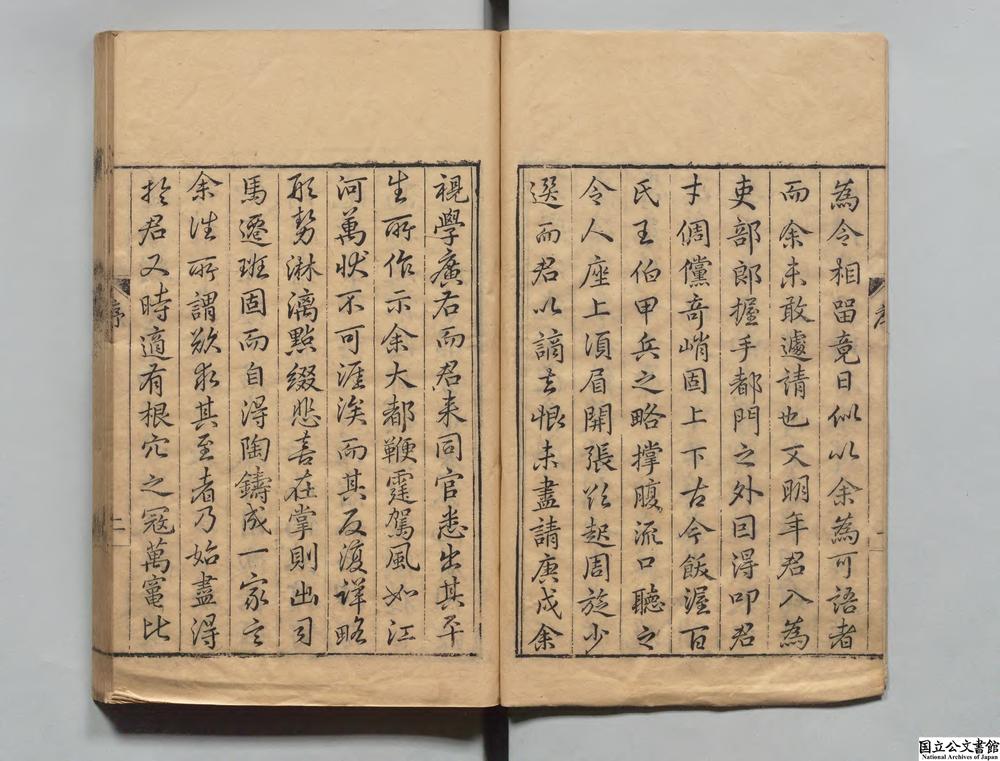 為令相留竟日似以余為可語者
而余未敢遽請也又明年君入為
吏部郎握手都門之外因得叩君
才倜儻奇峭固上下古今飯渥百
氏王伯甲兵之略撑腹流口聽之
令人座上須眉開張欲起周旋少
選而君以謫去恨未盡請庚戌余
視學廣右而君来同官悉出其平
生所作示余大都鞭霆駕風如江
河萬狀不可涯涘而其反復詳略
形勢淋漓點綴悲喜在掌則出司
馬遷班固而自得陶鑄成一家言
余往所謂欲求其至者乃始盡得
扵君又時適有根穴之冦萬竃比
序
二
国立公文書館
National Archives of Japan